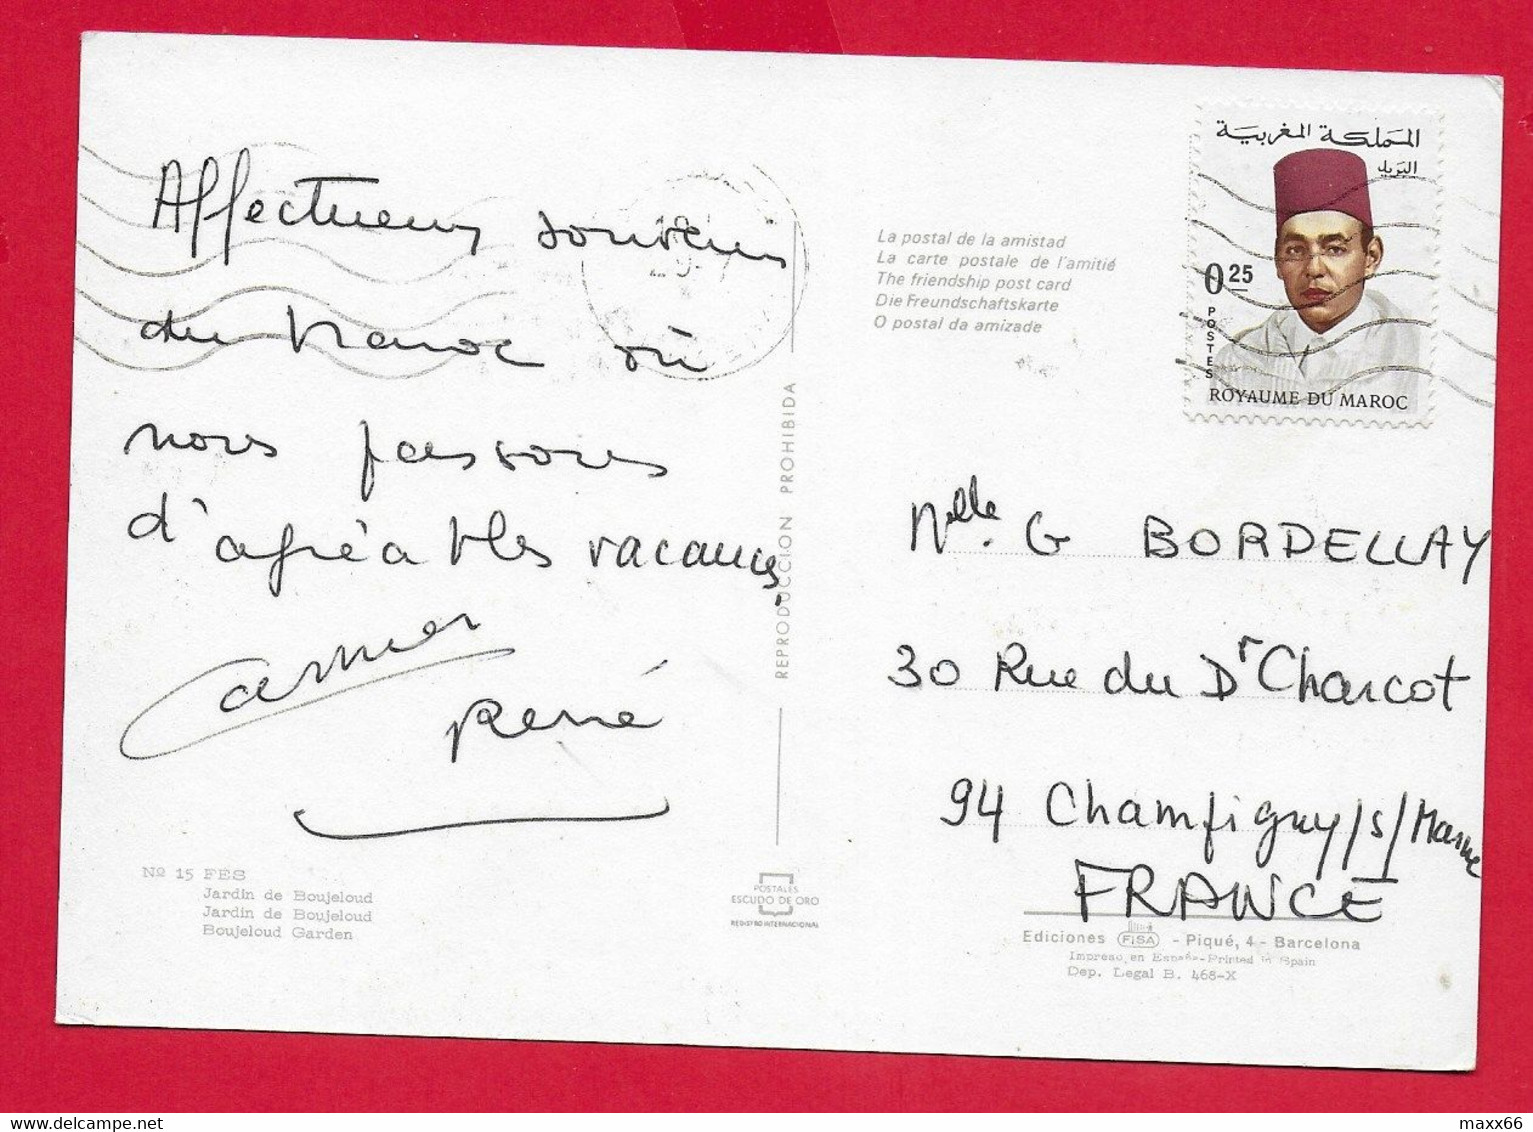 Affectueux souvenirs
du Maroc où
nous passons
d'agréables vacances.
René
Nº 15 FES
Jardin de Boujeloud
Jardin de Boujeloud
Boujeloud Garden
REPRODUCCION PROHIBIDA
POSTALES
ESCUDO DE ORO
REGISTRO INTERNACIONAL
La postal de la amistad
La carte postale de l'amitié
The friendship post card
Die Freundschaftskarte
O postal da amizade
المملكة المغربية
البريد
0.25
POSTES
ROYAUME DU MAROC
Mlle. G BORDELLAY
30 Rue du Dr Charcot
94 Champigny/s/Marne
FRANCE
Ediciones FISA - Piqué, 4 - Barcelona
Impreso en España-Printed in Spain
Dep. Legal B. 468-X
maxx66